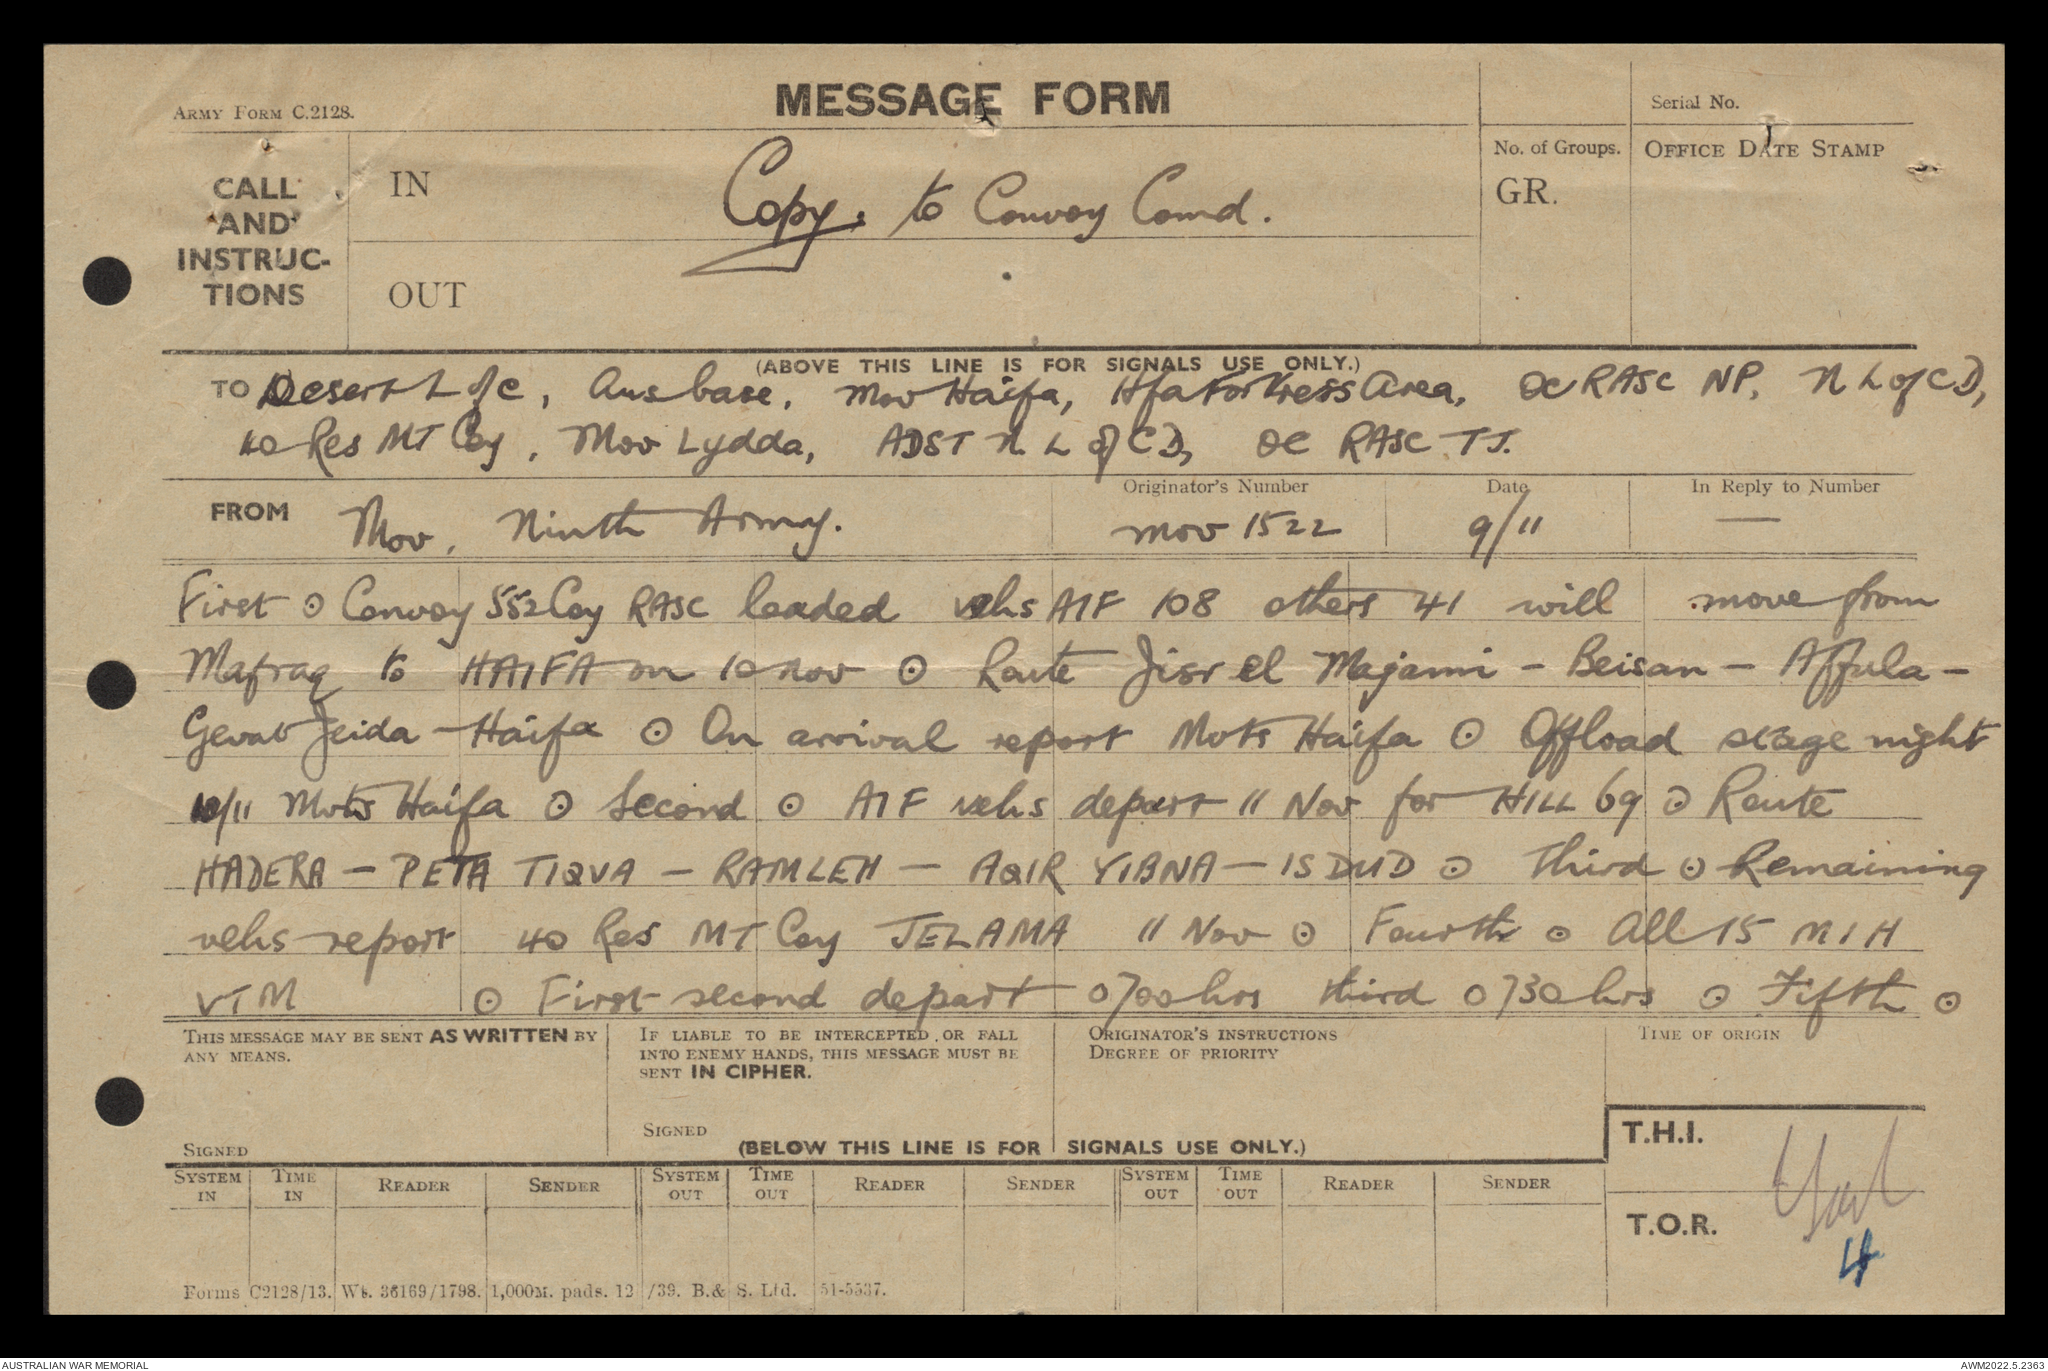 MESSAGE FORM
Army Form C.2128.
Serial No.
CALL AND INSTRUCTIONS
IN
Copy. to Convoy Comd.
No. of Groups.
GR.
Office Date Stamp
OUT
(ABOVE THIS LINE IS FOR SIGNALS USE ONLY.)
TO Desert L of C, Ausbase, Mov Haifa, Hfa Fortress Area, OC RASC NP, N L of C D,
40 Res MT Coy, Mov Lydda, ADST N L of C D, OC RASC TJ.
FROM Mov, Ninth Army.
Originator's Number
mov 1522
Date
9/11
In Reply to Number
—
First ⊙ Convoy 552 Coy RASC loaded vehs AIF 108 others 41 will move from
Mafraq to HAIFA on 10 nov ⊙ Route Jisr el Majami - Beisan - Affula -
Gevat Jeida - Haifa ⊙ On arrival report Mots Haifa ⊙ Offload stage night
10/11 Mots Haifa ⊙ Second ⊙ AIF vehs depart 11 Nov for HILL 69 ⊙ Route
HADERA - PETA TIQVA - RAMLEH - AQIR YIBNA - ISDUD ⊙ Third ⊙ Remaining
vehs report 40 Res MT Coy JELAMA 11 Nov ⊙ Fourth ⊙ All 15 MIH
VTM ⊙ First second depart 0700hrs third 0730hrs ⊙ Fifth ⊙
This message may be sent AS WRITTEN by any means.
Signed
If liable to be intercepted or fall into enemy hands, this message must be sent IN CIPHER.
Signed
Originator's Instructions
Degree of Priority
Time of Origin
(BELOW THIS LINE IS FOR SIGNALS USE ONLY.)
T.H.I.
System In
Time In
Reader
Sender
System Out
Time Out
Reader
Sender
System Out
Time Out
Reader
Sender
T.O.R.
4
Forms C2128/13. Wt. 36169/1798. 1,000m. pads. 12/39. B.& S. Ltd. 51-5537.
AUSTRALIAN WAR MEMORIAL
AWM2022.5.2363